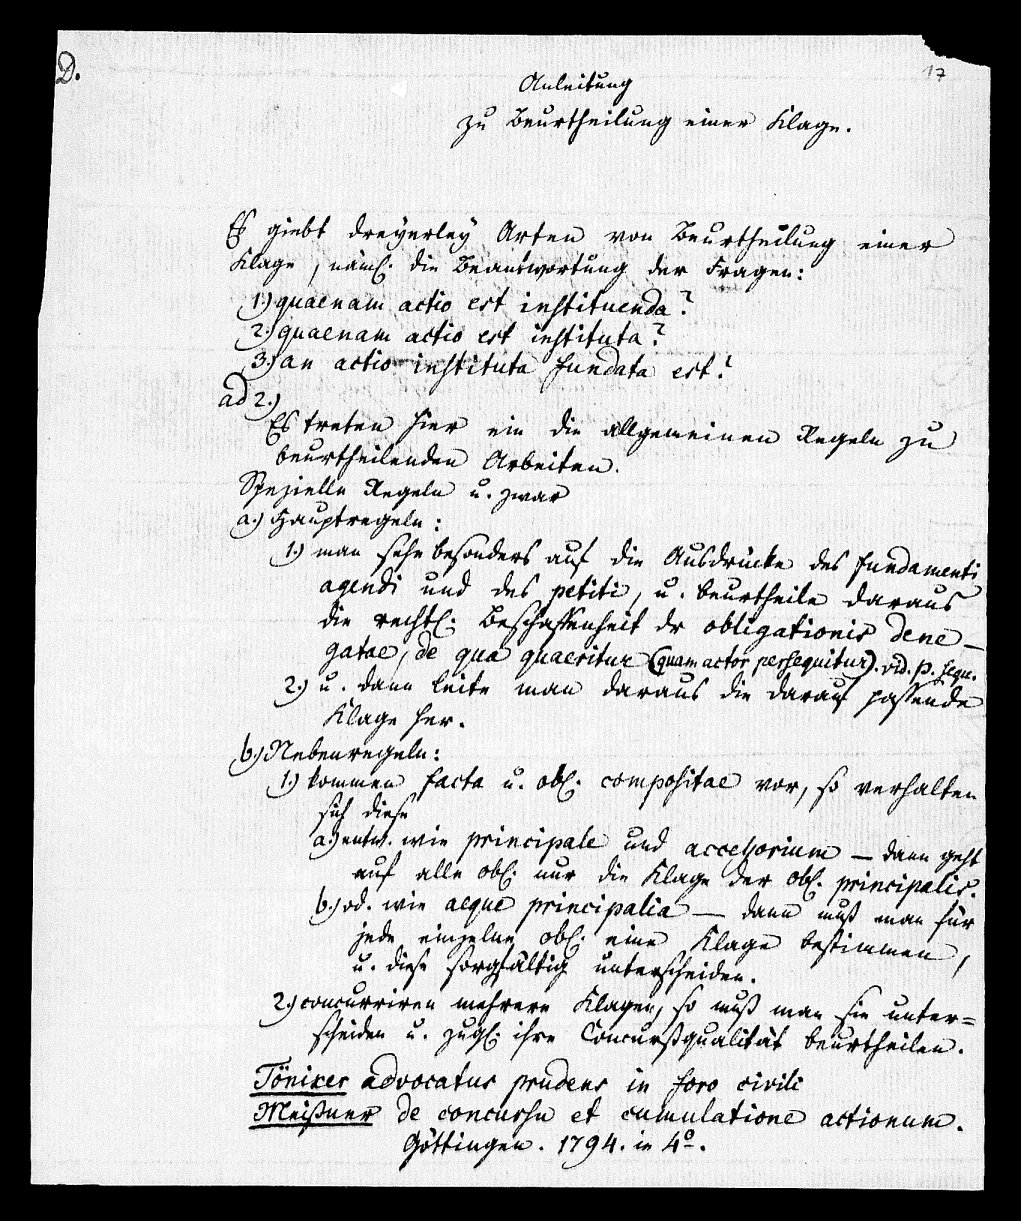 D.
17
Anleitung
zu Beurtheilung einer Klage.
Es giebt dreyerley Arten von Beurtheilung einer
Klage, näml. die Beantwortung der Fragen:
1.) quaenam actio est instituenda?
2.) quaenam actio est instituta?
3.) an actio instituta fundata est?
ad 2.)
Es treten hier ein die allgemeinen Regeln zu
beurtheilenden Arbeiten.
Spezielle Regeln u. zwar
a.) Hauptregeln:
1.) man sehe besonders auf die Ausdrücke des fundamenti
agendi und des petiti, u. beurtheile daraus
die rechtl. Beschaffenheit dr obligationis dene-
gatae, de qua quaeritur (quam actor persequitur). vid. p. sequ.
2.) u. dann leite man daraus die darauf passende
Klage her.
b.) Nebenregeln:
1.) kommen facta u. obl. compositae vor, so verhalten
sich diese
a.) entw. wie principale und accessorium — dann geht
auf alle obl. nur die Klage der obl. principalis.
b.) od. wie aeque principalia — dann muß man für
jede einzelne obl. eine Klage bestimmen,
u. diese sorgfältig unterscheiden.
2.) concurriren mehrere Klagen, so muß man sie unter=
scheiden u. zugl. ihre Concursqualität beurtheilen.
Töniker advocatus prudens in foro civili
Meißner de concursu et cumulatione actionum.
Göttingen. 1794. in 4º.